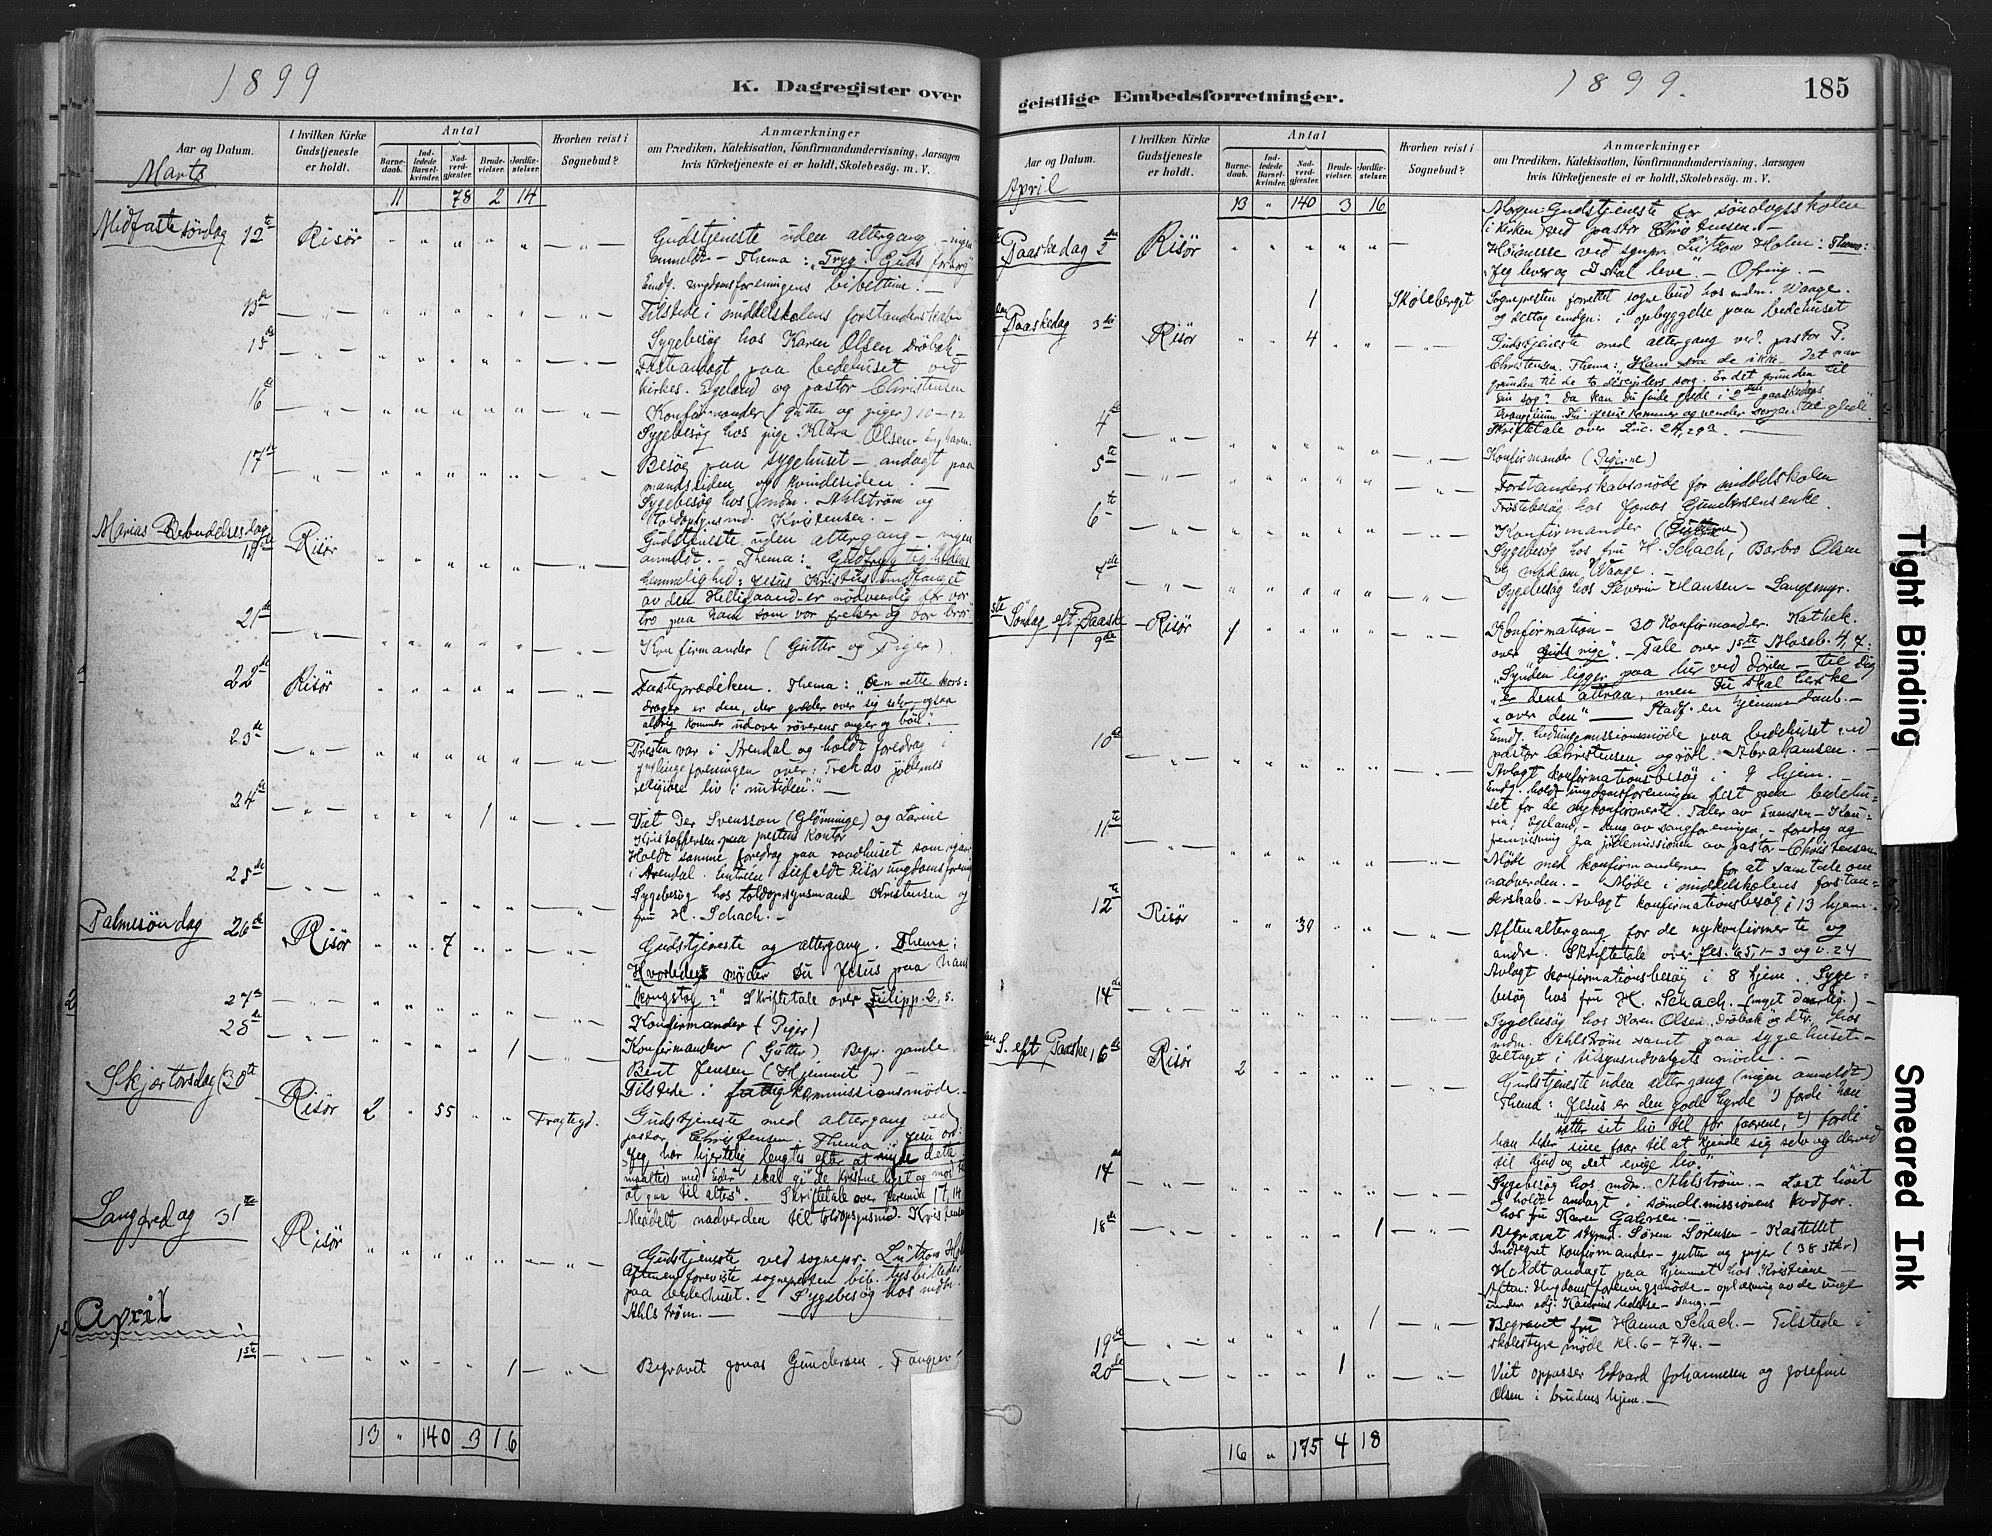 1899
K. Dagregister over
Aar og Datum.
I hvilken Kirke Gudstjeneste er holdt.
Antal
Barnedaab.
Indledede Barselkvinder.
Nadverdgjæster.
Brudevielser.
Jordfæstelser.
Hvorhen reist i Sognebud?
Anmærkninger
om Prædiken, Katekisation, Konfirmandundervisning, Aarsagen
hvis Kirketjeneste ei er holdt, Skolebesøg. m. V.
Marts
11 78 2 14
Midfastesöndag 12te Risør
Gudstjeneste uden altergang - ingen
anmeldt - Thema: "Tryg i Guds
Emdg. ungdomsforeningens bibeltime. -
13de
Tilstede i middelskolens forstanderskab
15de
Sygebesög hos Karen Olsen Dröbak -
Fasteandagt paa bedehuset ved
kirkes. Egeland og pastor Christensen
16de
Konfirmander (Gutter og piger) 10-12
Sygebesög hos pige Klara Olsen
17de
Besög paa sygehuset - andagt paa
mandssiden og kvindesiden. -
Sygebesög hos mdm. Ahlström og
toldopsynsmd. Kristensen. -
Marias Bebudelsesdag
19de Risør
Gudstjeneste uden altergang - ingen
anmeldt. Thema: Gudfrygtighedens
hemmelighed: Jesus Kristus undfanget
av den Helligaand - er nödvendig for vor
tro paa ham som vor frelser og vor bror"
21de
Konfirmander (Gutter og Piger).
22de Risør
Fasteprædiken. Thema: "Den rette kors-
drager er den, der græder over sig selv, ogsaa
aldrig kommer udover röverens anger og bön"
23de
Presten var i Arendal og holdt foredrag i
ynglingeforeningen over: Træk av jödernes
religiöse liv i nutiden". -
24de 1
Viet Per Svensson (Glömminge) og Larine
Kristoffersen paa prestens kontor
Holdt samme foredrag paa raadhuset som igaar
i Arendal. Entréen tilfaldt Risör ungdomsforening
25de
Sygebesög hos toldopsynsmand Kristensen og
fru H. Schach. -
Palmesöndag 26de Risør 7
Gudstjeneste og altergang. Thema:
Hvorledes möder du Jesus paa hans
"kongetog?" Skriftetale over Filipp. 2, 5.
27de
Konfirmander (Piger)
28de 1
Konfirmander (Gutter) Begr. gamle
Berit Jensen (Hjemmet) -
Tilstede i fattigkommissionsmöde.
Skjærtorsdag 30te Risør 2 55
Gudstjeneste med altergang ved
pastor Christensen. Thema: Jesu ord:
"Jeg har hjertelig lengtes efter at nyde dette
maaltid med Eder" skal gi de kristne lyst og mod til
at gaa til alters". Skriftetale over Jeremia 17, 14
Meddelt nadverden til toldopsynsmd. Kristensen
Langfredag 31te Risør
Gudstjeneste ved sognepr. Lützow Holm
Aftenen foreviste sognepresten bib. lysbilleder
paa bedehuset. - Sygebesög hos mdm.
Ahlström. -
April
1ste 1
Begravet Jonas Gundersen
13 " 140 3 16
geistlige Embedsforretninger.
1899.
185
Aar og Datum.
I hvilken Kirke Gudstjeneste er holdt.
Antal
Barnedaab.
Indledede Barselkvinder.
Nadverdgjæster.
Brudevielser.
Jordfæstelser.
Hvorhen reist i Sognebud?
Anmærkninger
om Prædiken, Katekisation, Konfirmandundervisning, Aarsagen
hvis Kirketjeneste ei er holdt, Skolebesøg. m. V.
April
13 " 140 3 16
Paaskedag 2den Risør
Morgen: Gudstjeneste for söndagsskolen
(i kirken) ved pastor Christensen. -
Höimesse ved sgnpr. Lützow Holm: Thema:
"Jeg lever og I skal leve". - Ofring. -
1 Skoleberget
Sognepresten forrettet sognebud hos mdm. Waage.
og deltog emdgn: i opbyggelse paa bedehuset
Paaskedag 3die Risør 4
Gudstjeneste med altergang ved pastor P.
Christensen. Thema: "Ham saa de ikke - det var
grunden til de to disciplers sorg. Er det grunden til
din sorg? Da kan du finde glede i 2den paaskedags
Evangelium. Thi Jesus kommer og vender sorgen til glede"
Skriftetale over Luc. 24, 29a. -
4de
Konfirmander (Pigerne)
5te
Forstanderskabsmöde for middelskolen
Tröstebesög hos Jonas Gundersens enke.
6te
Konfirmander (Gutterne)
Sygebesög hos fru H. Schach, Barbro Olsen
og madam Waage. -
7de
Sygebesög hos Severin Hansen - Langemyr.
1ste Söndag eft Paaske 9de Risør 1
Konfirmation - 30 konfirmander. Kathek.
over Guds rige". - Tale over 1ste Moseb. 4, 7:
"Synden ligger paa lur ved dören - til dig
"er dens attraa, men du skal herske
"over den" - Stadf. en hjemmedaab. -
Emdg. hedningemissionsmöde paa bedehuset ved
pastor Christensen og Abrahamsen. -
10de
Avlagt konfirmationsbesög i 9 hjem. -
Emdg. holdt ungdomsforeningen fest paa bedehu-
set for de nykonfirmert. Taler av Evensen -
Egeland, - sang av sangforeningen, - foredrag og
fremvisning fra jödemissionen av pastor Christensen
11te
Möde med konfirmanderne for at samtale om
nadverden. - Möde i middelskolens forstan-
derskab. - Avlagt konfirmationsbesög i 13 hjem
12te Risør 30
Aftenaltergang for de nykonfirmerte og
andre. Skriftetale over Jes. 65, 1-3 og v. 24
Avlagt konfirmationsbesög i 8 hjem. Syge-
besög hos fru H. Schach. (meget daarlig.) -
14de
Sygebesög hos Karen Olsen, Dröbak og dtr. hos
mdm. Ahlström samt paa sygehuset -
Deltaget i tilsynsudvalgets möde. -
S. eft Paaske 16de Risør 2
Gudstjeneste uden altergang (ingen anmeldt)
Thema: "Jesus er den gode hyrde 1) fordi han
sætter sit liv til for faarene, 2) fordi
han leder sine faar til at kjende sig selv og derved
til Gud og det evige liv."
17de
Sygebesög hos mdm. Ahlström. - Læst höit
og holdt andagt i sömandsmissionens kvdfor.
hos fru Karen -
18de 1
Begravet styrmd. Sören Sörensen - Kastellet
Indtegnet konfirmander - gutter og piger (38 stkr)
Holdt andagt paa hjemmet hos Kristiane -
Aften: Ungdomsforeningsmöde - oplæsning av de unge
under adj. ledelse - sang. -
19de 1
Begravet fru Hanna Schach. - Tilstede i
skolestyremöde kl. 6 - 7 3/4. -
20de 1
Viet opasser Edvard Johannesen og Josefine
Olsen i brudens hjem. -
16 " 175 4 18
Tight Binding
Smeared Ink